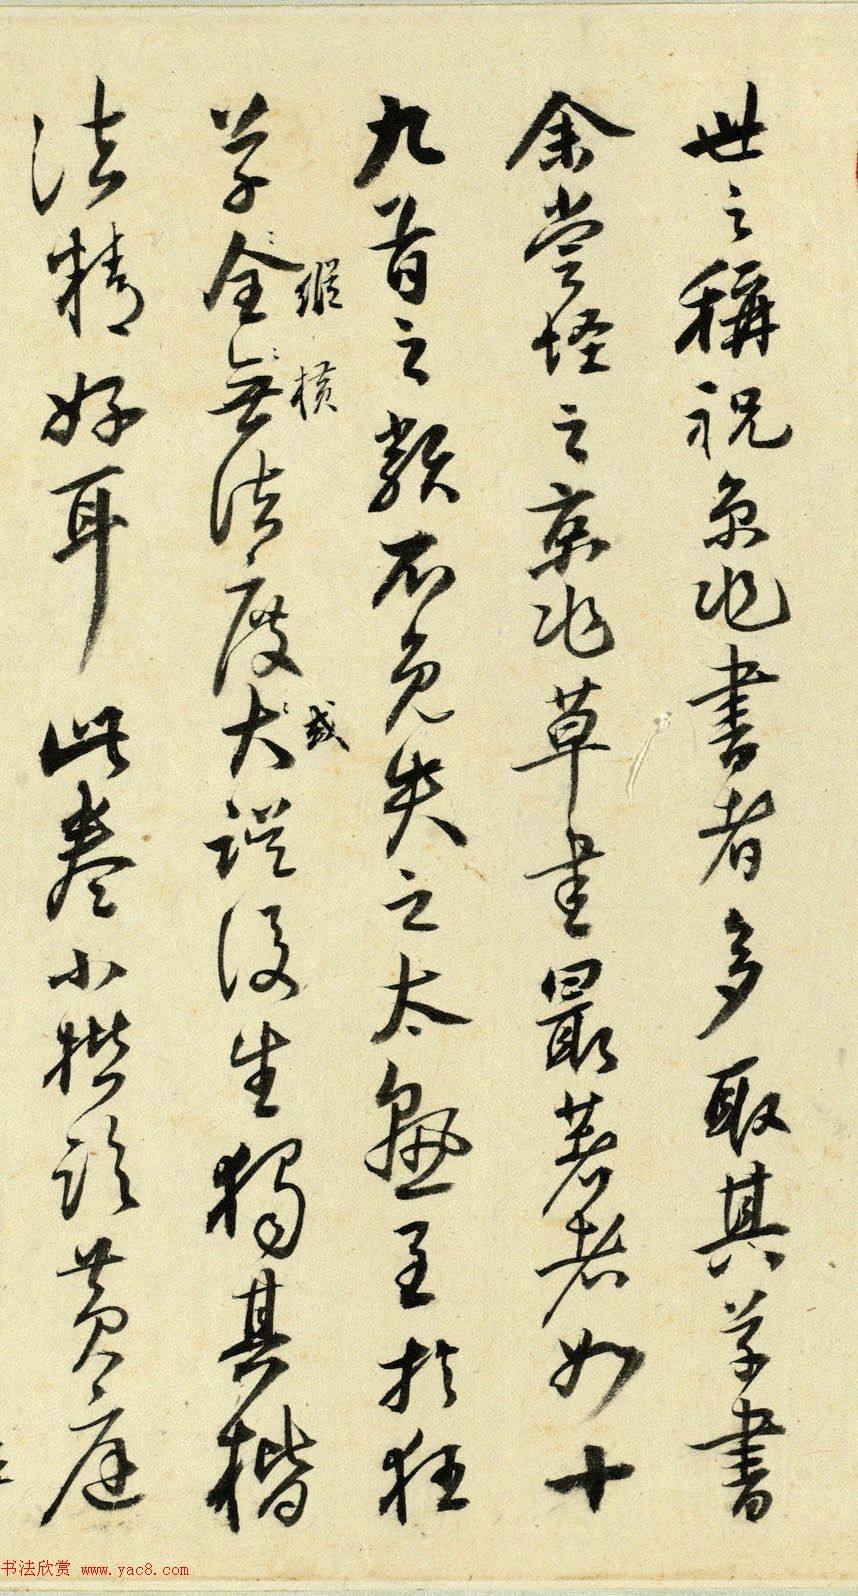 世之稱祝京兆書者多取其草書
余嘗怪之京兆草書最著者如十
九首之類不免失之太熟至於狂
草全無法度大誤後生獨其楷
縱橫
或
法精好耳此卷小楷臨黃庭
书法欣赏 www.yac8.com